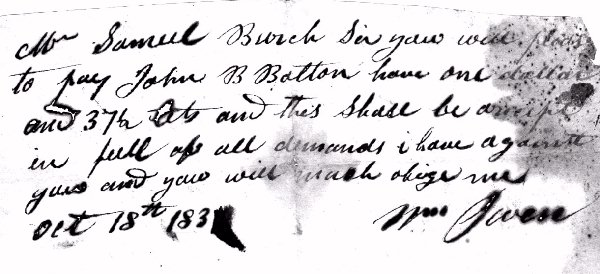 Mr Samuel Burch Sir yaw will pleas
to pay John B Botton have one dollar
and 37½ Cts and this Shall be a recipt
in full of all demands i have against
yaw and yaw will much obige me
Oct 18th 183
Wm Owen